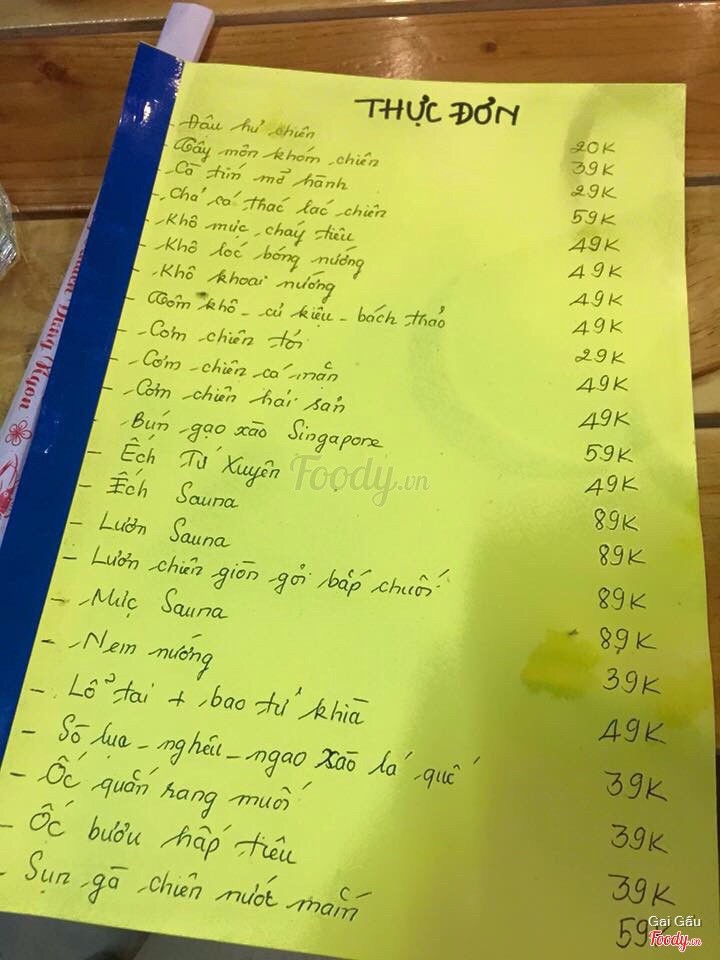 THỰC ĐƠN
- Đậu hư chiên 20K
- Tây môn khóm chiên 39K
- Cà tím mở hành 29K
- Chả cá thác lác chiên 59K
- Khô mực cháy tiêu 49K
- Khô lóc bóng nướng 49K
- Khô khoai nướng 49K
- Tôm khô - củ kiệu - bách thảo 49K
- Cơm chiên tỏi 29K
- Cơm chiên cá mặn 49K
- Cơm chiên hải sản 49K
- Bún gạo xào Singapore 59K
- Ếch Tứ Xuyên 49K
- Ếch Sauna 89K
- Lươn Sauna 89K
- Lươn chiên giòn gỏi bắp chuối 89K
- Mực Sauna 89K
- Nem nướng 39K
- Lổ tai + bao tử khìa 49K
- Sò lụa - nghêu - ngao xào lá quế 39K
- Ốc quắn rang muối 39K
- Ốc bươu hấp tiêu 39K
- Sụn gà chiên nước mắm 59K
Foody.vn
Gai Gấu
Foody.vn